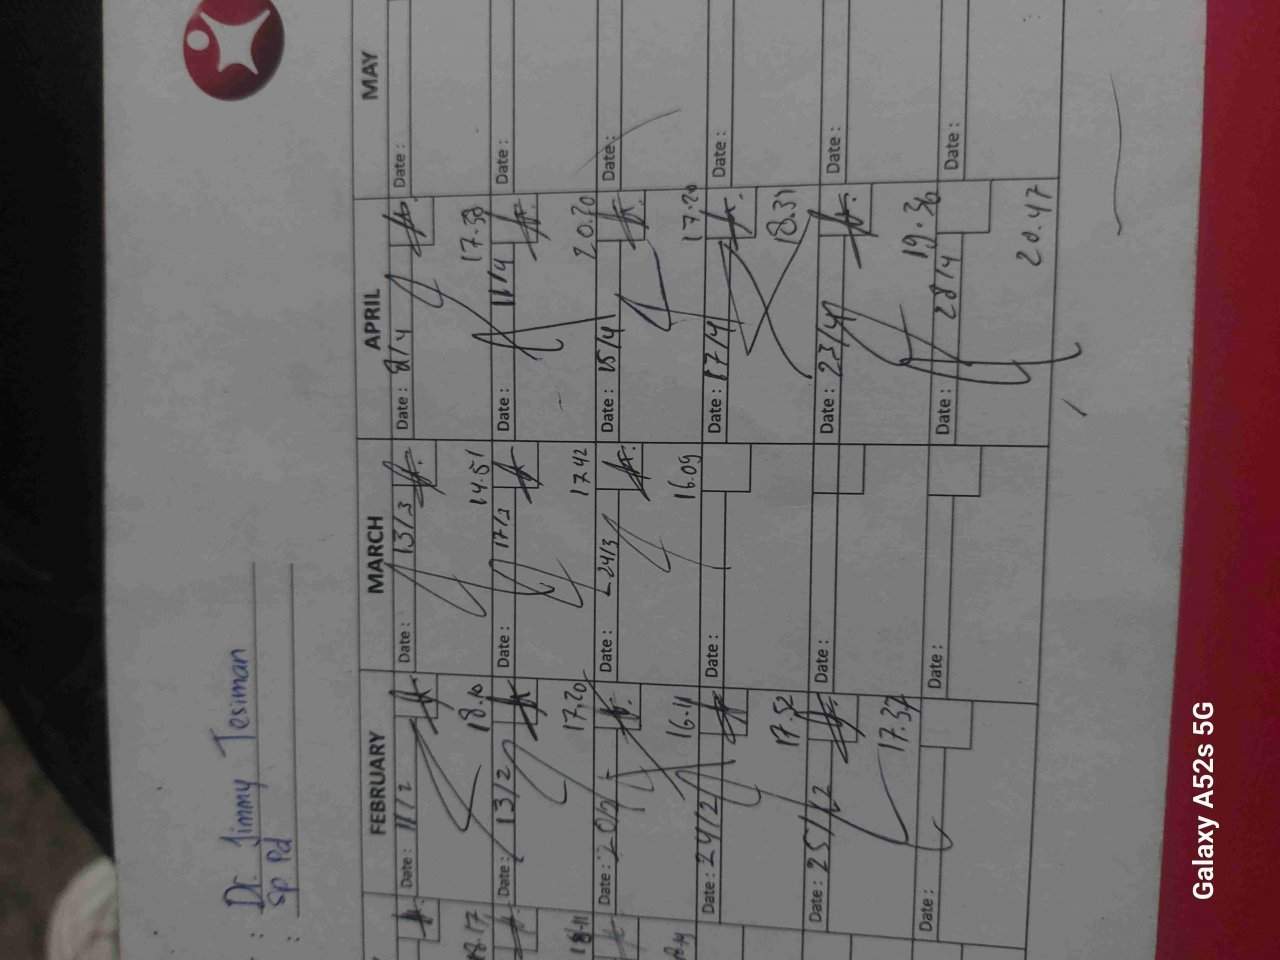 : Dr. Jimmy Tesiman
: Sp. Pd
FEBRUARY MARCH APRIL MAY
Date : 11/2 Date : 13/3 Date : 8/4 Date :
18.17 18.10 14.51 17.58
Date : 13/2 Date : 17/3 Date : 11/4 Date :
18.11 17.20 17.42 20.20
Date : 20/2 Date : 24/3 Date : 15/4 Date :
16.11 16.09 17.20
Date : 24/2 Date : Date : 17/4 Date :
17.52 18.37
Date : 25/2 Date : Date : 23/4 Date :
17.37 19.36
Date : Date : Date : 28/4 Date :
20.47
Galaxy A52s 5G